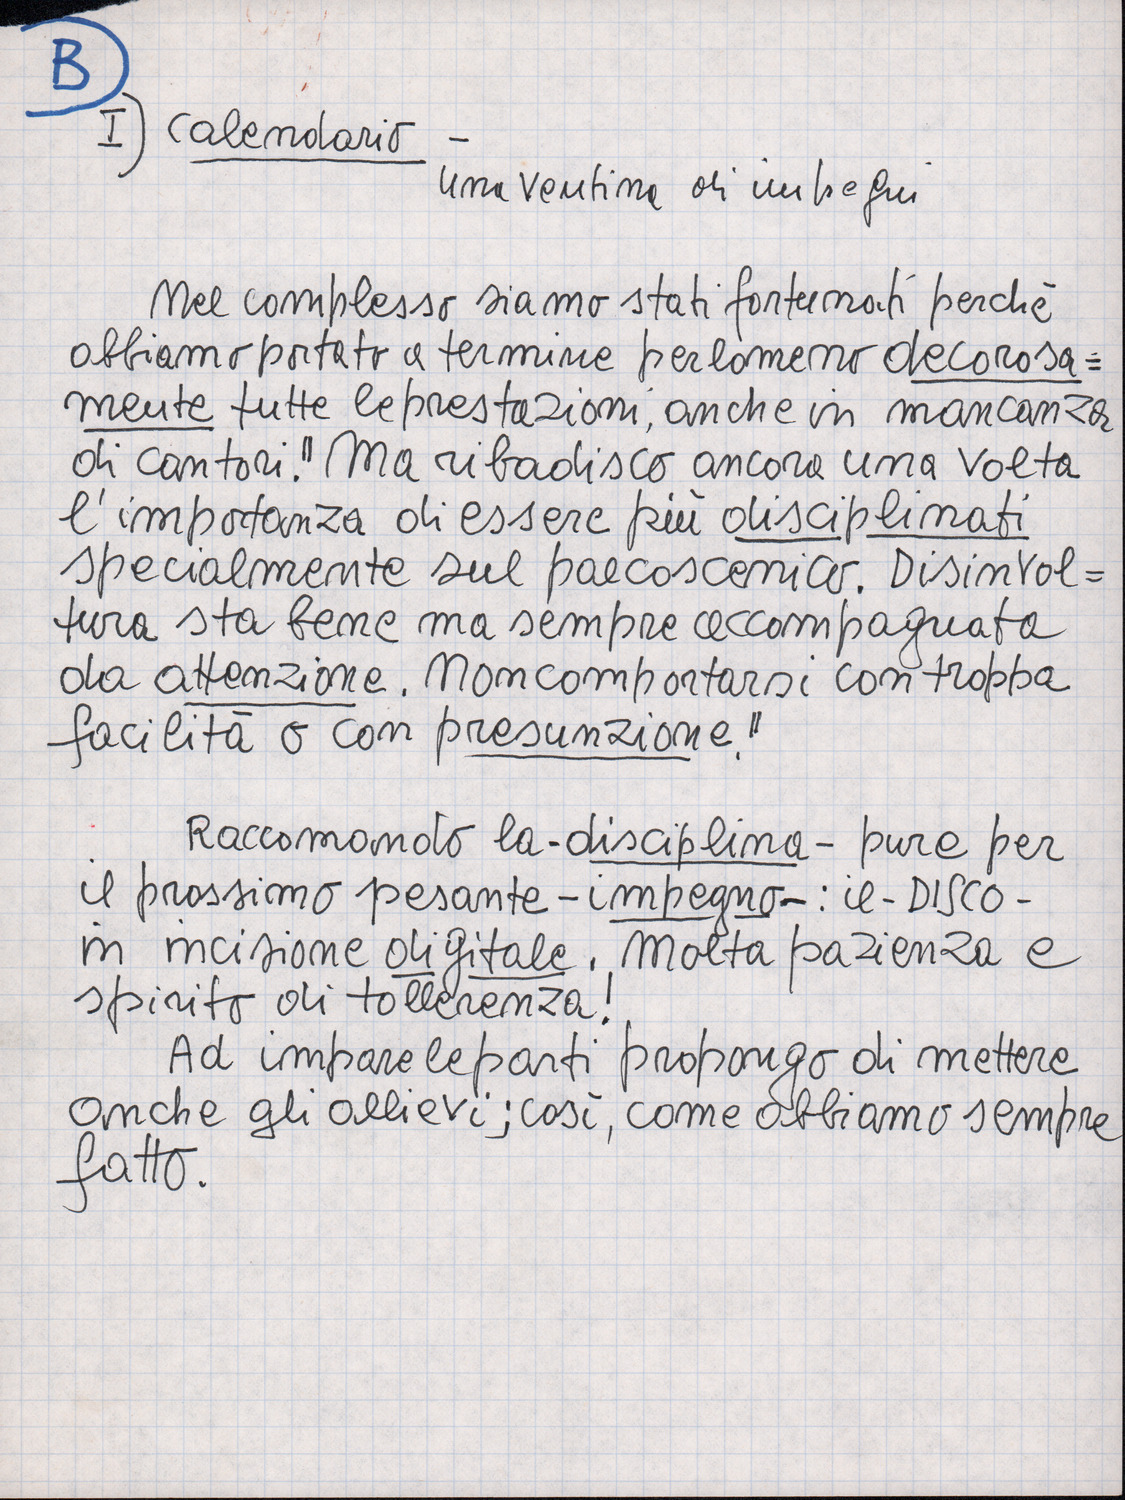 B
I) Calendario -
una ventina di impegni
Nel complesso siamo stati fortunati perchè
abbiamo portato a termine perlomeno decorosa=
mente tutte le prestazioni, anche in mancanza
di cantori." Ma ribadisco ancora una volta
l'importanza di essere più disciplinati
specialmente sul palcoscenico. Disinvol=
tura sta bene ma sempre accompagnata
da attenzione. Non comportarsi con troppa
facilità o con presunzione."
Raccomando la - disciplina - pure per
il prossimo pesante - impegno - : il - DISCO -
in incisione digitale. Molta pazienza e
spirito di tollerenza!
Ad impare le parti propongo di mettere
anche gli allievi; così, come abbiamo sempre
fatto.